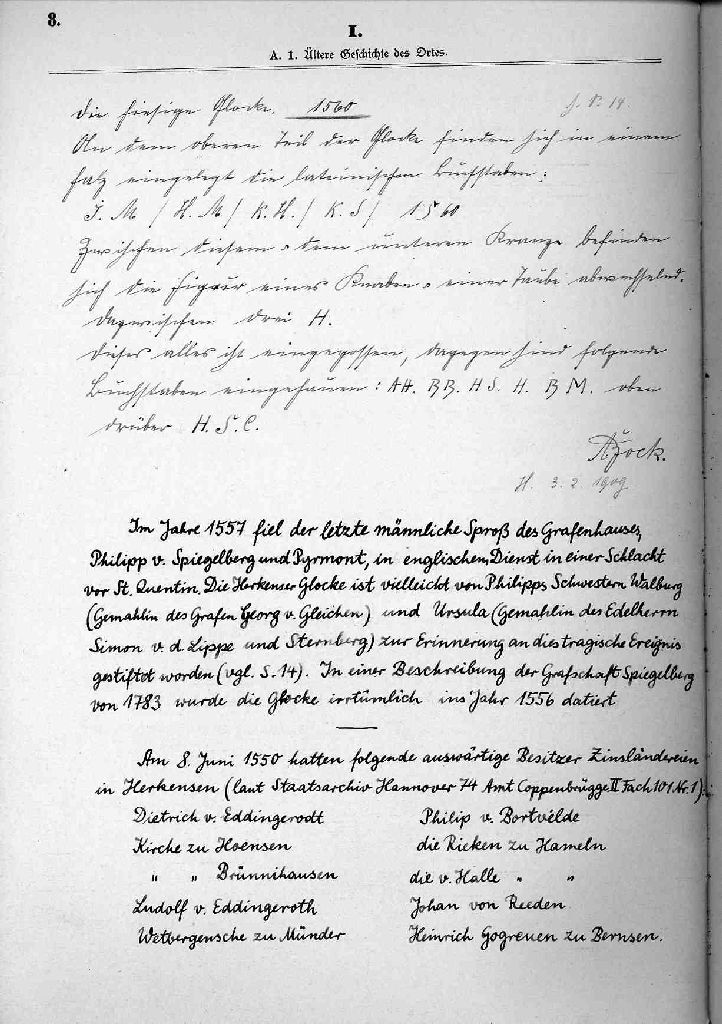 8.
I.
A. 1. Ältere Geschichte des Ortes.
Die hiesige Glocke. 1560 S. 14.
An dem oberen Teil der Glocke finden sich in einem
Falz eingelegt die lateinischen Buchstaben:
J. M / H. M / K. H. / K. S / 1560
Zwischen diesem u. dem unteren Kranze befinden
sich die Figur eines Knaben u. einer Taube abwechselnd.
Dazwischen drei H.
Dieses alles ist eingegossen, dagegen sind folgende
Buchstaben eingehauen: AH. BB. HS. H. BM. oben
drüber H. S. C.
H. 3. 2. 1909
Im Jahre 1557 fiel der letzte männliche Sproß des Grafenhauses,
Philipp v. Spiegelberg und Pyrmont, in englischen Dienst in einer Schlacht
vor St. Quentin. Die Herkenser Glocke ist vielleicht von Philipps Schwestern Walburg
(Gemahlin des Grafen Georg v. Gleichen) und Ursula (Gemahlin des Edelherrn
Simon v. d. Lippe und Sternberg) zur Erinnerung an dies tragische Ereignis
gestiftet worden (vgl. S. 14). In einer Beschreibung der Grafschaft Spiegelberg
von 1783 wurde die Glocke irrtümlich ins Jahr 1556 datiert
Am 8. Juni 1550 hatten folgende auswärtige Besitzer Zinsländereien
in Herkensen (laut Staatsarchiv Hannover 74 Amt Coppenbrügge II Fach 101 Nr. 1):
Dietrich v. Eddingerodt Philip v. Bortvelde
Kirche zu Hoensen die Rieken zu Hameln
" " Brünnihausen die v. Halle " "
Ludolf v. Eddingeroth Johan von Reeden
Wetbergensche zu Münder Heinrich Gogreuen zu Bernsen.